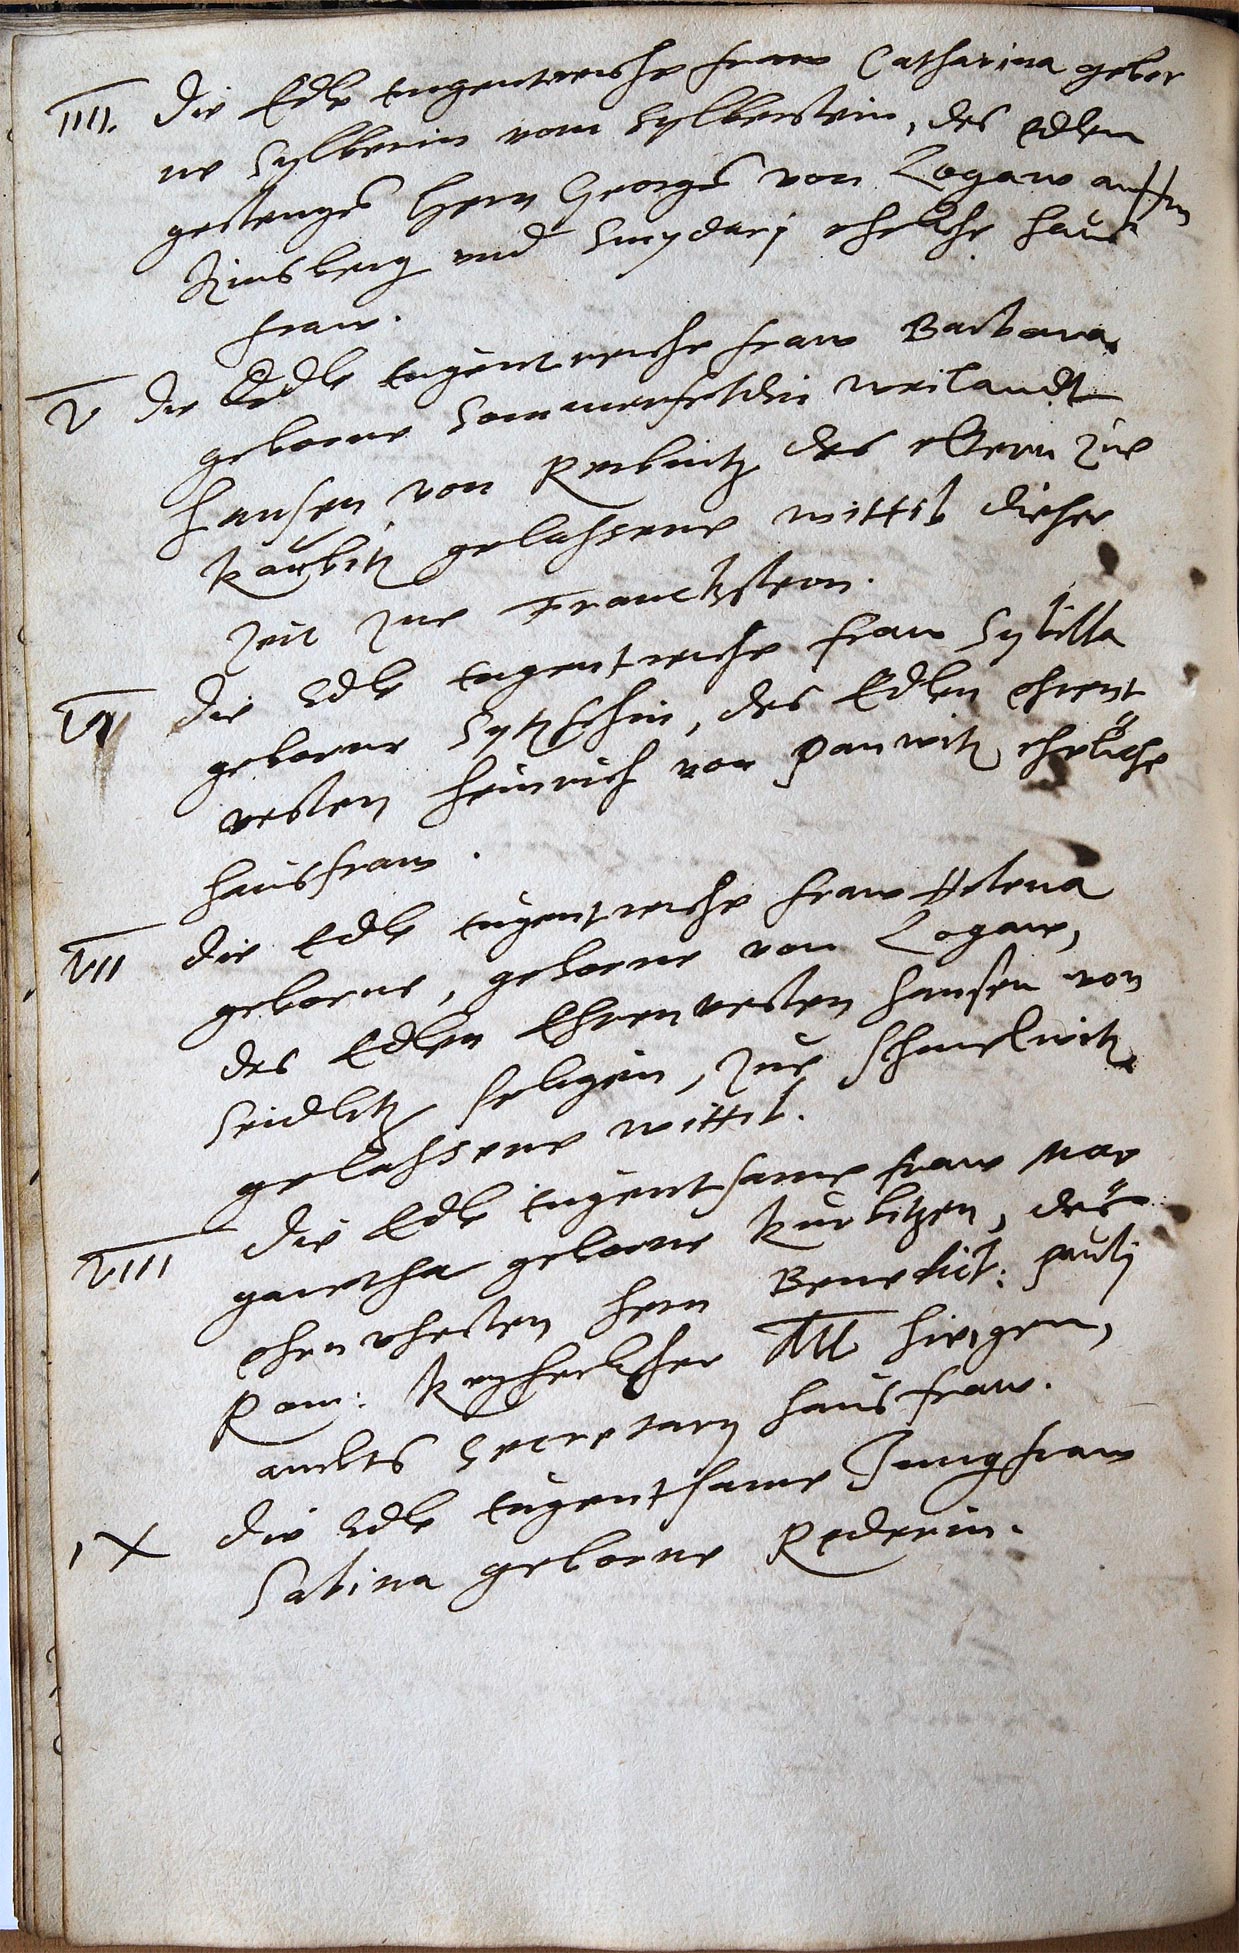 IIII. Die Edle tugentreiche fraw Catharina gebor
ne Sylberin vom Sylberstein, des Edlen
gestrenges Hern Georges von Logaw auffm
Kinsberg und ehliche haus
fraw.
V Die Edle tugentreiche fraw Barbara
geborne Sommerfeldin weilandt
Hansen von Reibnitz des eltern zue
Kaubitz gelassene wittib dieser
zeit zue Franckstein.
VI Die Edle tugentreiche fraw Sybilla
geborne des Edlen ehrent
vesten Heinrich von Panwitz eheliche
hausfraw.
VII Die Edle tugentreiche fraw Helena
geborne, geborne von Logaw,
des Edlen Ehrenvesten Hansen von
Seidlitz seligen, zue Schmelwitz
gelassene wittib.
VIII Die Edle tugentsame fraw Mar
garetha geborne Kurbitzen, des
ehrnvhesten Hern Benedict: Pauli
Rom: Keyserlicher Mtt hiesigen,
ambts Secretary hausfraw.
IX Die Edle tugentsame Jungfraw
Sabina geborne Rederin.